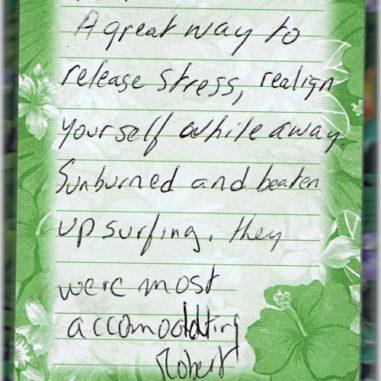 A great way to
release stress, realign
yourself while away.
Sunburned and beaten
up surfing, they
were most
accomodating
Robert